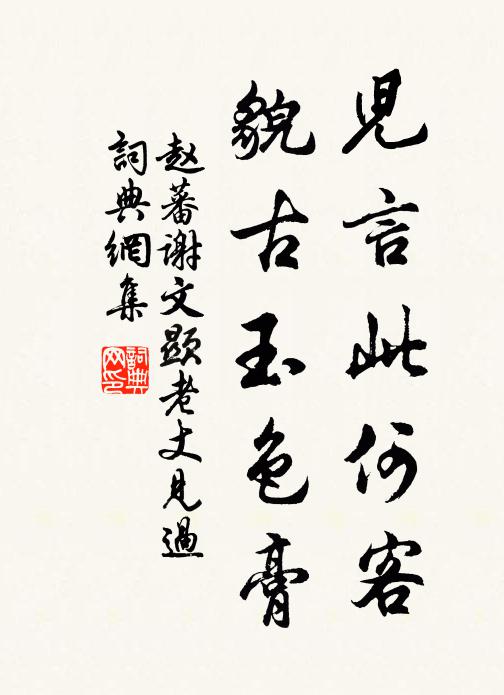 児言此何客
貌古玉色膏
赵蕃谢文顕老丈見過
詞典網集
詞典网印